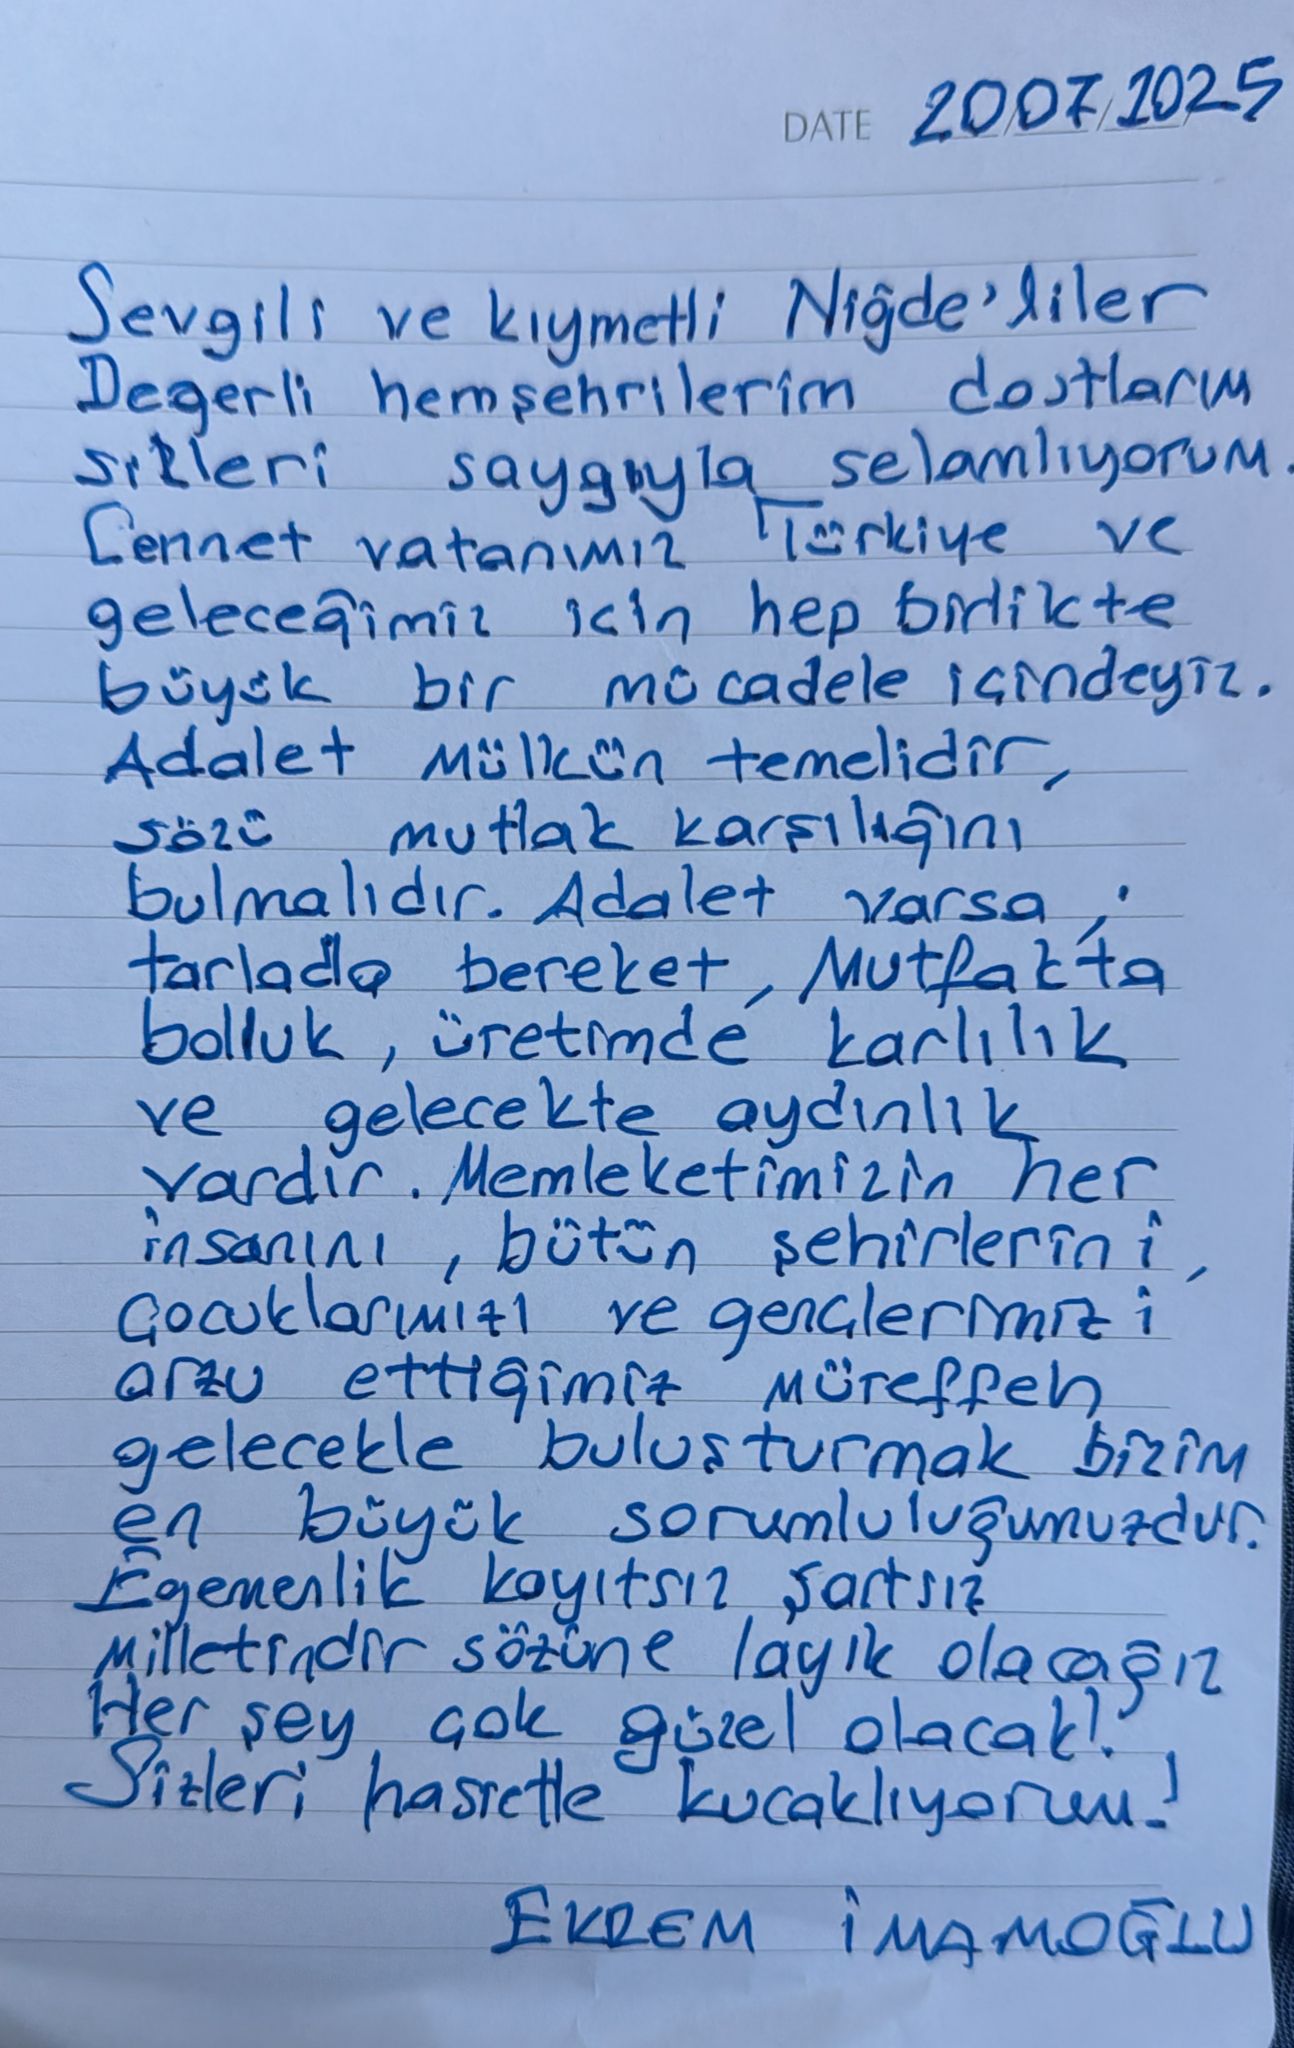 DATE 20/07/2025
Sevgili ve kıymetli Niğde'liler
Değerli hemşehrilerim dostlarım
sizleri saygıyla selamlıyorum.
Cennet vatanımız Türkiye ve
geleceğimiz için hep birlikte
büyük bir mücadele içindeyiz.
Adalet mülkün temelidir,
sözü mutlak karşılığını
bulmalıdır. Adalet varsa;
tarlada bereket, Mutfakta
bolluk, üretimde karlılık
ve gelecekte aydınlık
vardır. Memleketimizin her
insanını, bütün şehirlerini,
Çocuklarımızı ve gençlerimizi
arzu ettiğimiz müreffeh
gelecekle buluşturmak bizim
en büyük sorumluluğumuzdur.
Egemenlik kayıtsız şartsız
Milletindir sözüne layık olacağız
Her şey çok güzel olacak!
Sizleri hasretle kucaklıyorum!
EKREM İMAMOĞLU